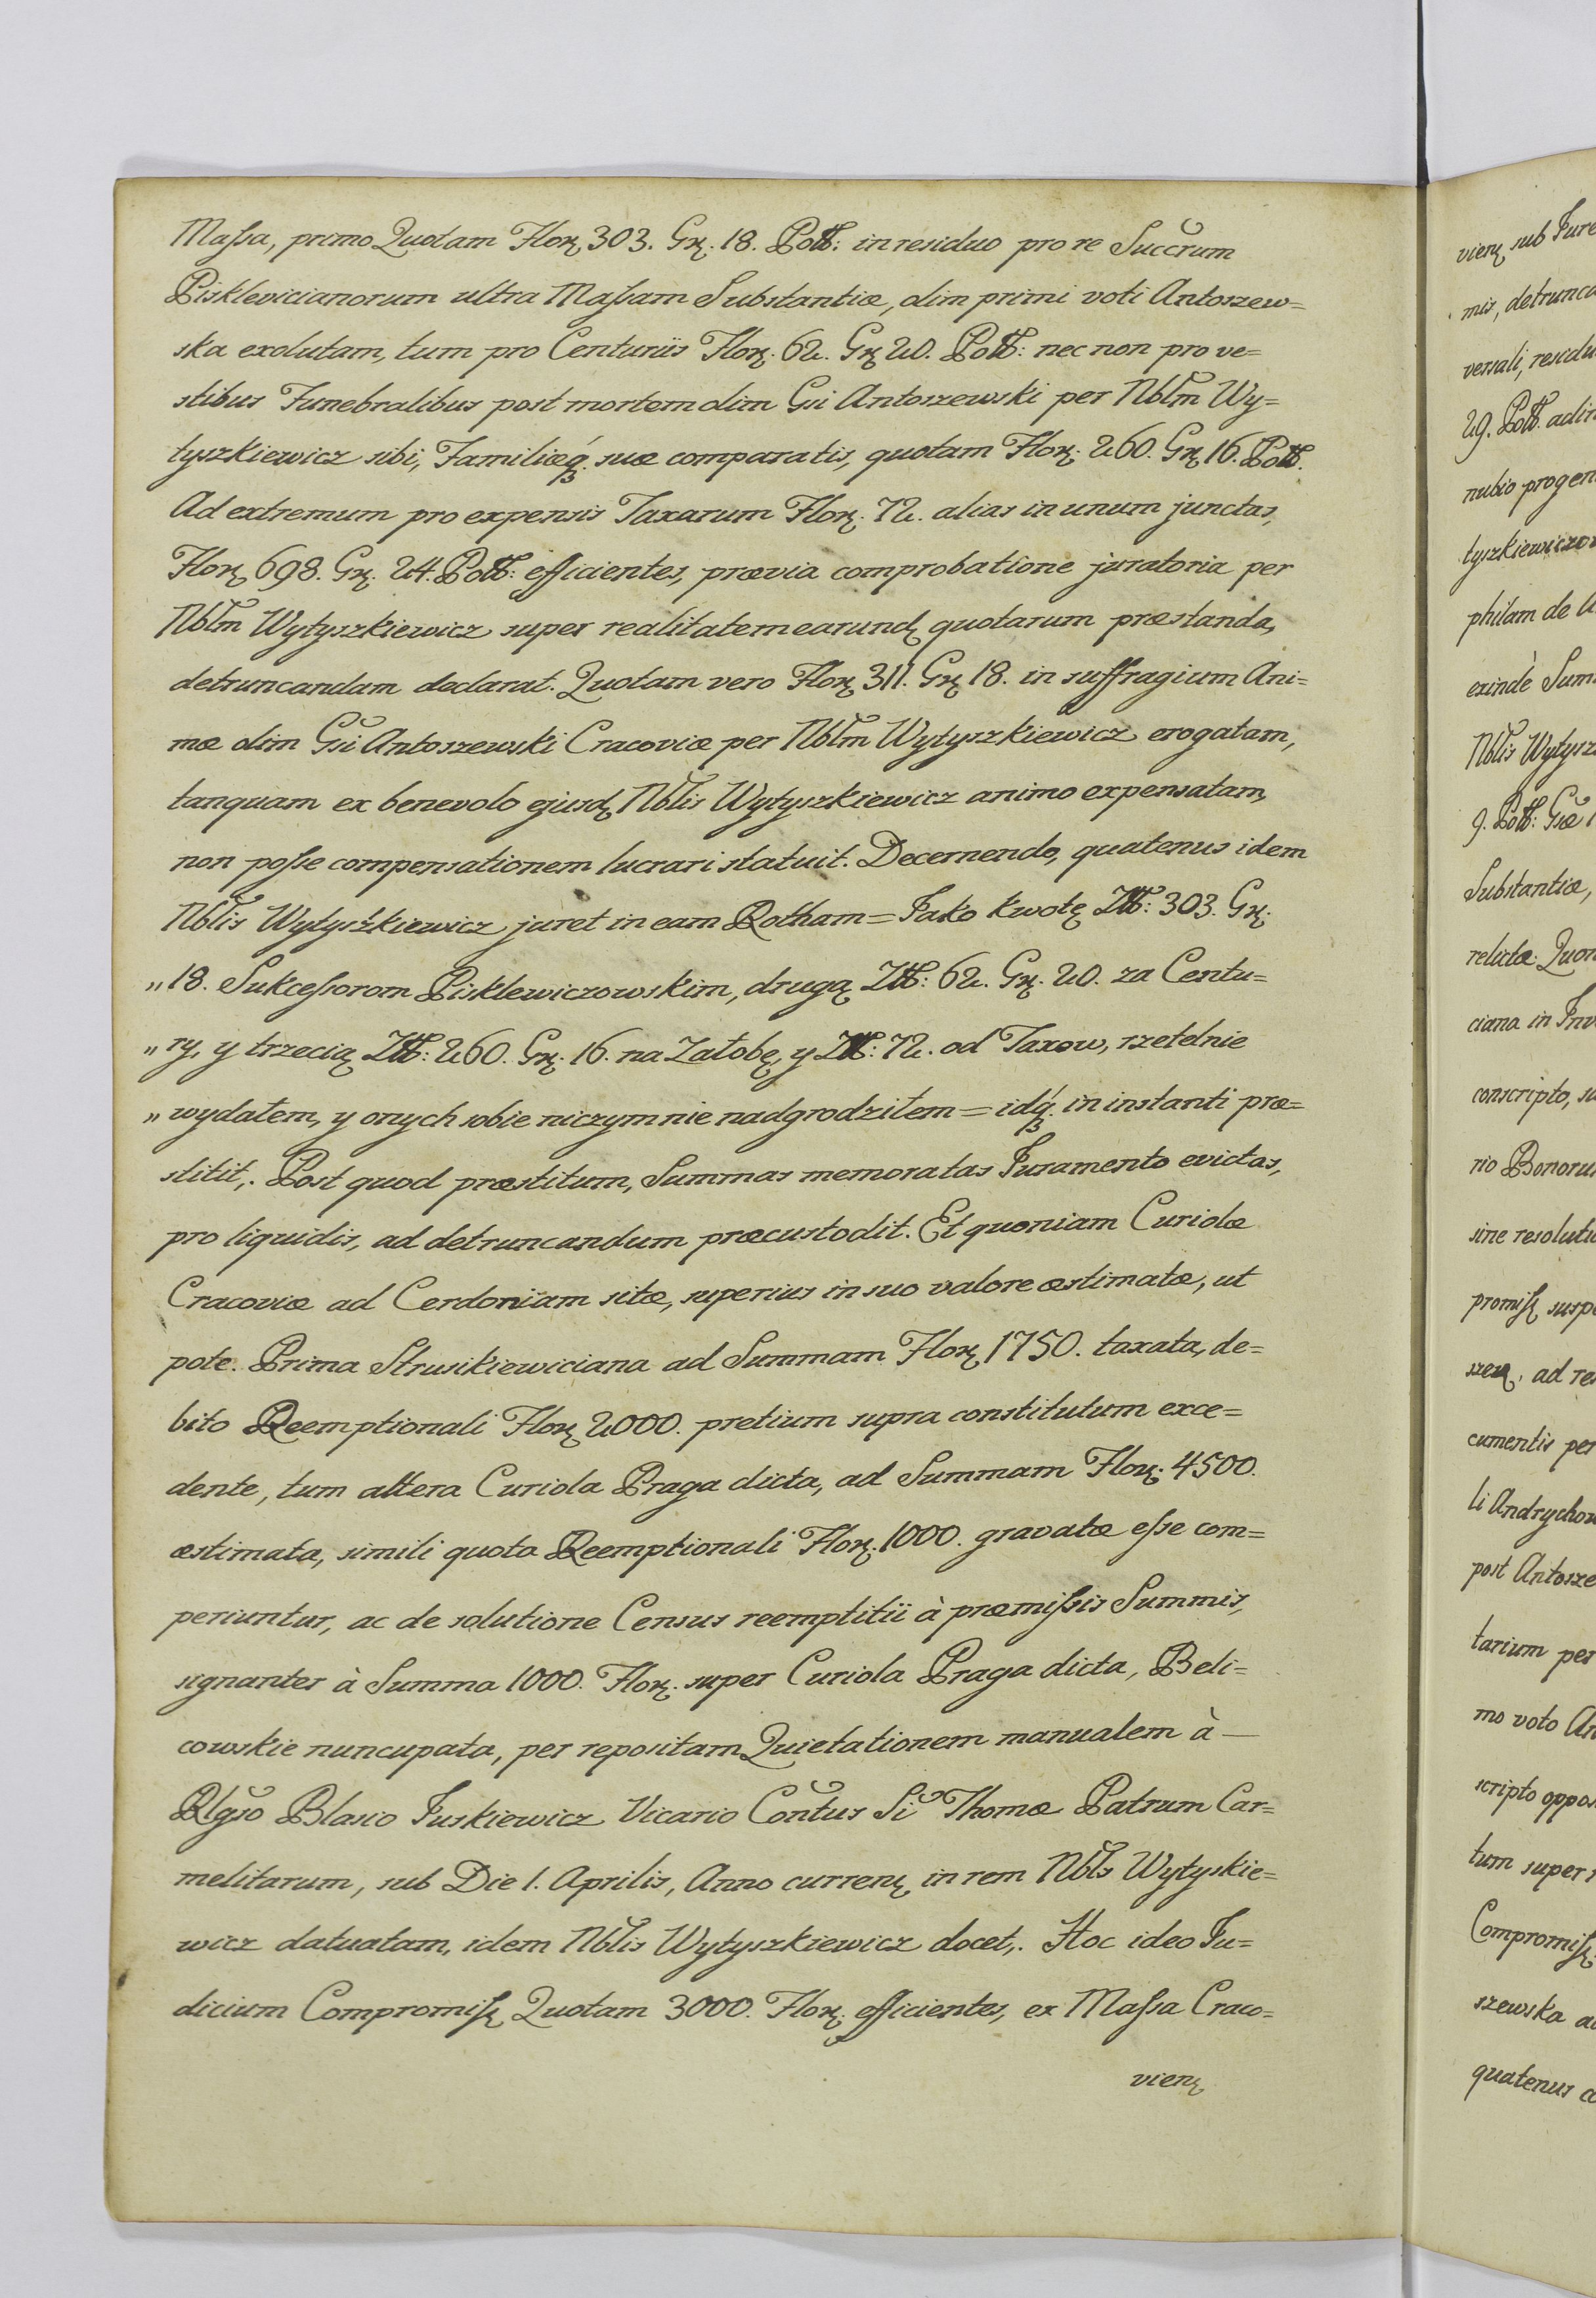 Maſsa, primo Quotam Flor. 303. Gr. 18. Poll: in residuo pro re Succrum
Pisklevicianorum ultra Maſsam Substantiæ, olim primi voti Antoszew=
ska exolutam, tum pro Centuriis Flor. 62. Gr 20. Poll: nec non pro ve=
stibus Funebralibus post mortem olim Gsi Antoszewski per Nblm Wy=
tyszkiewicz sibi, Familiæq. suæ comparatis, quotam Flor. 260. Gr 16. Poll.
Ad extremum pro expensis Taxarum Flor. 72. alias in unum junctas,
Flor 698. Gr. 24. Poll: efficientes, prævia comprobatione juratoria per
Nblm Wytyszkiewicz super realitatem earund quotarum præstanda,
detruncandam declarat. Quotam vero Flor 311. Gr 18. in suffragium Ani=
mæ olim Gsi Antoszewski Cracoviæ per Nblm Wytyszkiewicz erogatam,
tanquam ex benevolo ejusd Nblis Wytyszkiewicz animo expensatam,
non poſse compensationem lucrari statuit. Decernendo, quatenus idem
Nblis Wytyszkiewicz juret in eam Rotham = Jako kwotę Zll: 303. Gr.
„ 18. Sukceſsorom Pisklewiczowskim, drugą Zll: 62. Gr. 20. za Centu=
„ ry, y trzecią Zll: 260. Gr. 16. na Załobę, y Zll: 72. od Taxow, rzetelnie
„ wydałem, y onych sobie niczym nie nadgrodziłem = idq. in instanti præ=
stitit,. Post quod præstitum, Summas memoratas Juramento evictas,
pro liquidis, ad detruncandum præcustodit. Et quoniam Curiolæ
Cracoviæ ad Cerdoniam sitæ, superius in suo valore æstimatæ, ut
pote. Prima Strusikiewiciana ad Summam Flor 1750. taxata, de=
bito Reemptionali Flor 2000. pretium supra constitutum exce=
dente, tum altera Curiola Praga dicta, ad Summam Flor. 4500.
æstimata, simili quota Reemptionali Flor. 1000. gravatæ eſse com=
periuntur, ac de solutione Census reemptitii à præmiſsis Summis,
signanter à Summa 1000. Flor. super Curiola Praga dicta, Beli=
cowskie nuncupata, per repositam Quietationem manualem à —
Rlgso Blasio Juskiewicz Vicario Contus Si Thomæ Patrum Car=
melitarum, sub Die 1. Aprilis, Anno curren in rem Nbls Wytyskie=
wicz datuatam, idem Nblis Wytyszkiewicz docet,. Hoc ideo Ju=
dicium Compromiſs Quotam 3000. Flor. efficientes, ex Maſsa Craco=
vien
vien sub Jure
mis, detrunca
versali, residu
29. Poll. adin
nubio progen
tyszkiewiczow
philam de A
exindè Sum
Nblis Wytysz
9. Poll: Gsæ
Substantiæ,
relictæ. Quon
ciana in Inv
conscripto, su
rio Bonoru
sine resolutio
promiſs suspe
ad re
cumentis per
li Andrychow
post Antosze
tarium per
mo voto An
scripto oppos
tum super
Compromiſs
szewska a
quatenus a